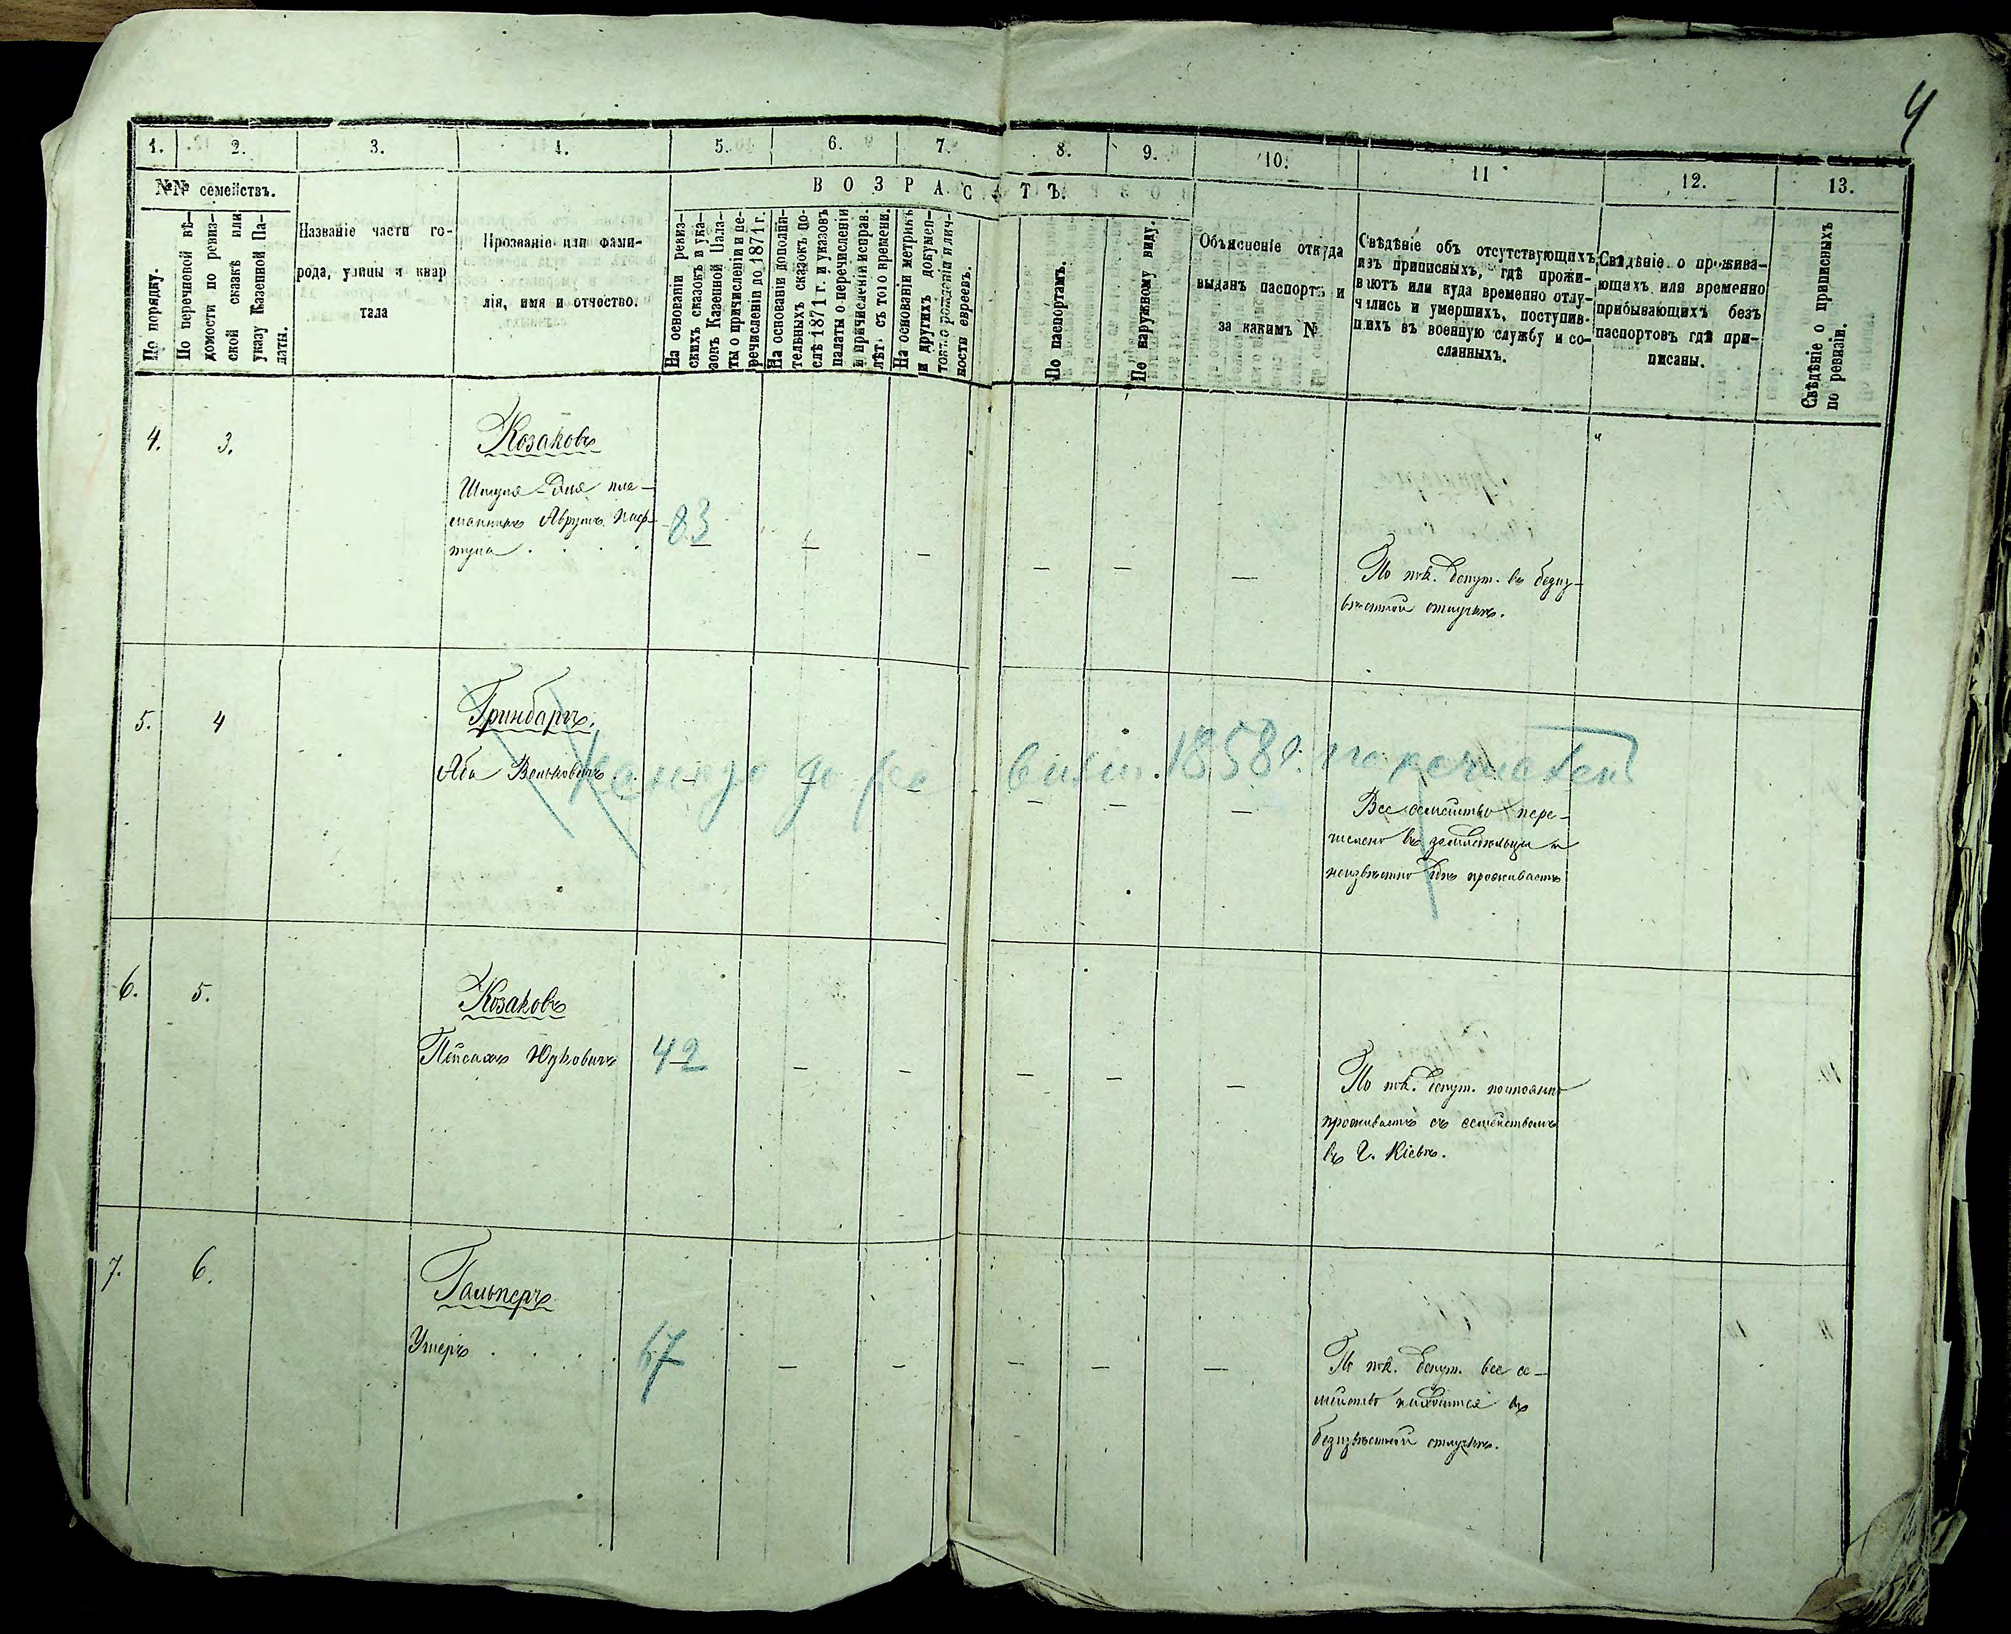 4
1. 2. 3. 4. 5. 6. 7. 8. 9. 10. 11 12. 13.
№№ семействъ.
ВОЗРАСТЪ.
По порядку.
По перечневой вѣ-
домости по ревиз-
ской сказкѣ или
указу Казенной Па-
латы.
Названіе части го-
рода, улицы и квар
тала
Прозваніе или фами-
лія, имя и отчество.
На основаніи ревиз-
скихъ сказокъ и ука-
зовъ Казенной Пала-
ты о причисленіи и пе-
речисленіи до 1871 г.
На основаніи дополни-
тельныхъ сказокъ по-
слѣ 1871 г. и указовъ
палаты о перечисленіи
и причисленіи исправ.
лѣт. съ того времени.
На основаніи метрикъ
и другихъ докумен-
товъ о рожденіи и лич-
ности евреевъ.
По паспортамъ.
По наружному виду.
Объясненіе откуда
выданъ паспортъ и
за какимъ №
Свѣдѣніе объ отсутствующихъ
изъ приписныхъ, гдѣ прожи-
ваютъ или куда временно отлу-
чились и умершихъ, поступив-
шихъ въ военную службу и со-
сланныхъ.
Свѣдѣніе о прожива-
ющихъ или временно
прибывающихъ безъ
паспортовъ гдѣ при-
писаны.
Свѣдѣніе о приписныхъ
по ревизіи.
4. 3. Козаковъ
племянникъ Аврумъ
83 — — — — —
По пок. депут. въ безиз-
вѣстной отлучкѣ.
5. 4 Гринбаргъ,
Аба Вольковичъ — — — — — —
1858 г.
Все семейство пере-
числено въ земледѣльцы и
неизвѣстно гдѣ проживаетъ
6. 5. Козаковъ
Пейсахъ Юдковичъ 42 — — — — —
По пок. депут. постоянно
проживаетъ съ семействомъ
въ г. Кіевѣ.
7. 6. Гальперъ
Ушеръ . . . . 67 — — — — —
По пок. депут. все се-
мейство находится въ
безизвѣстной отлучкѣ.